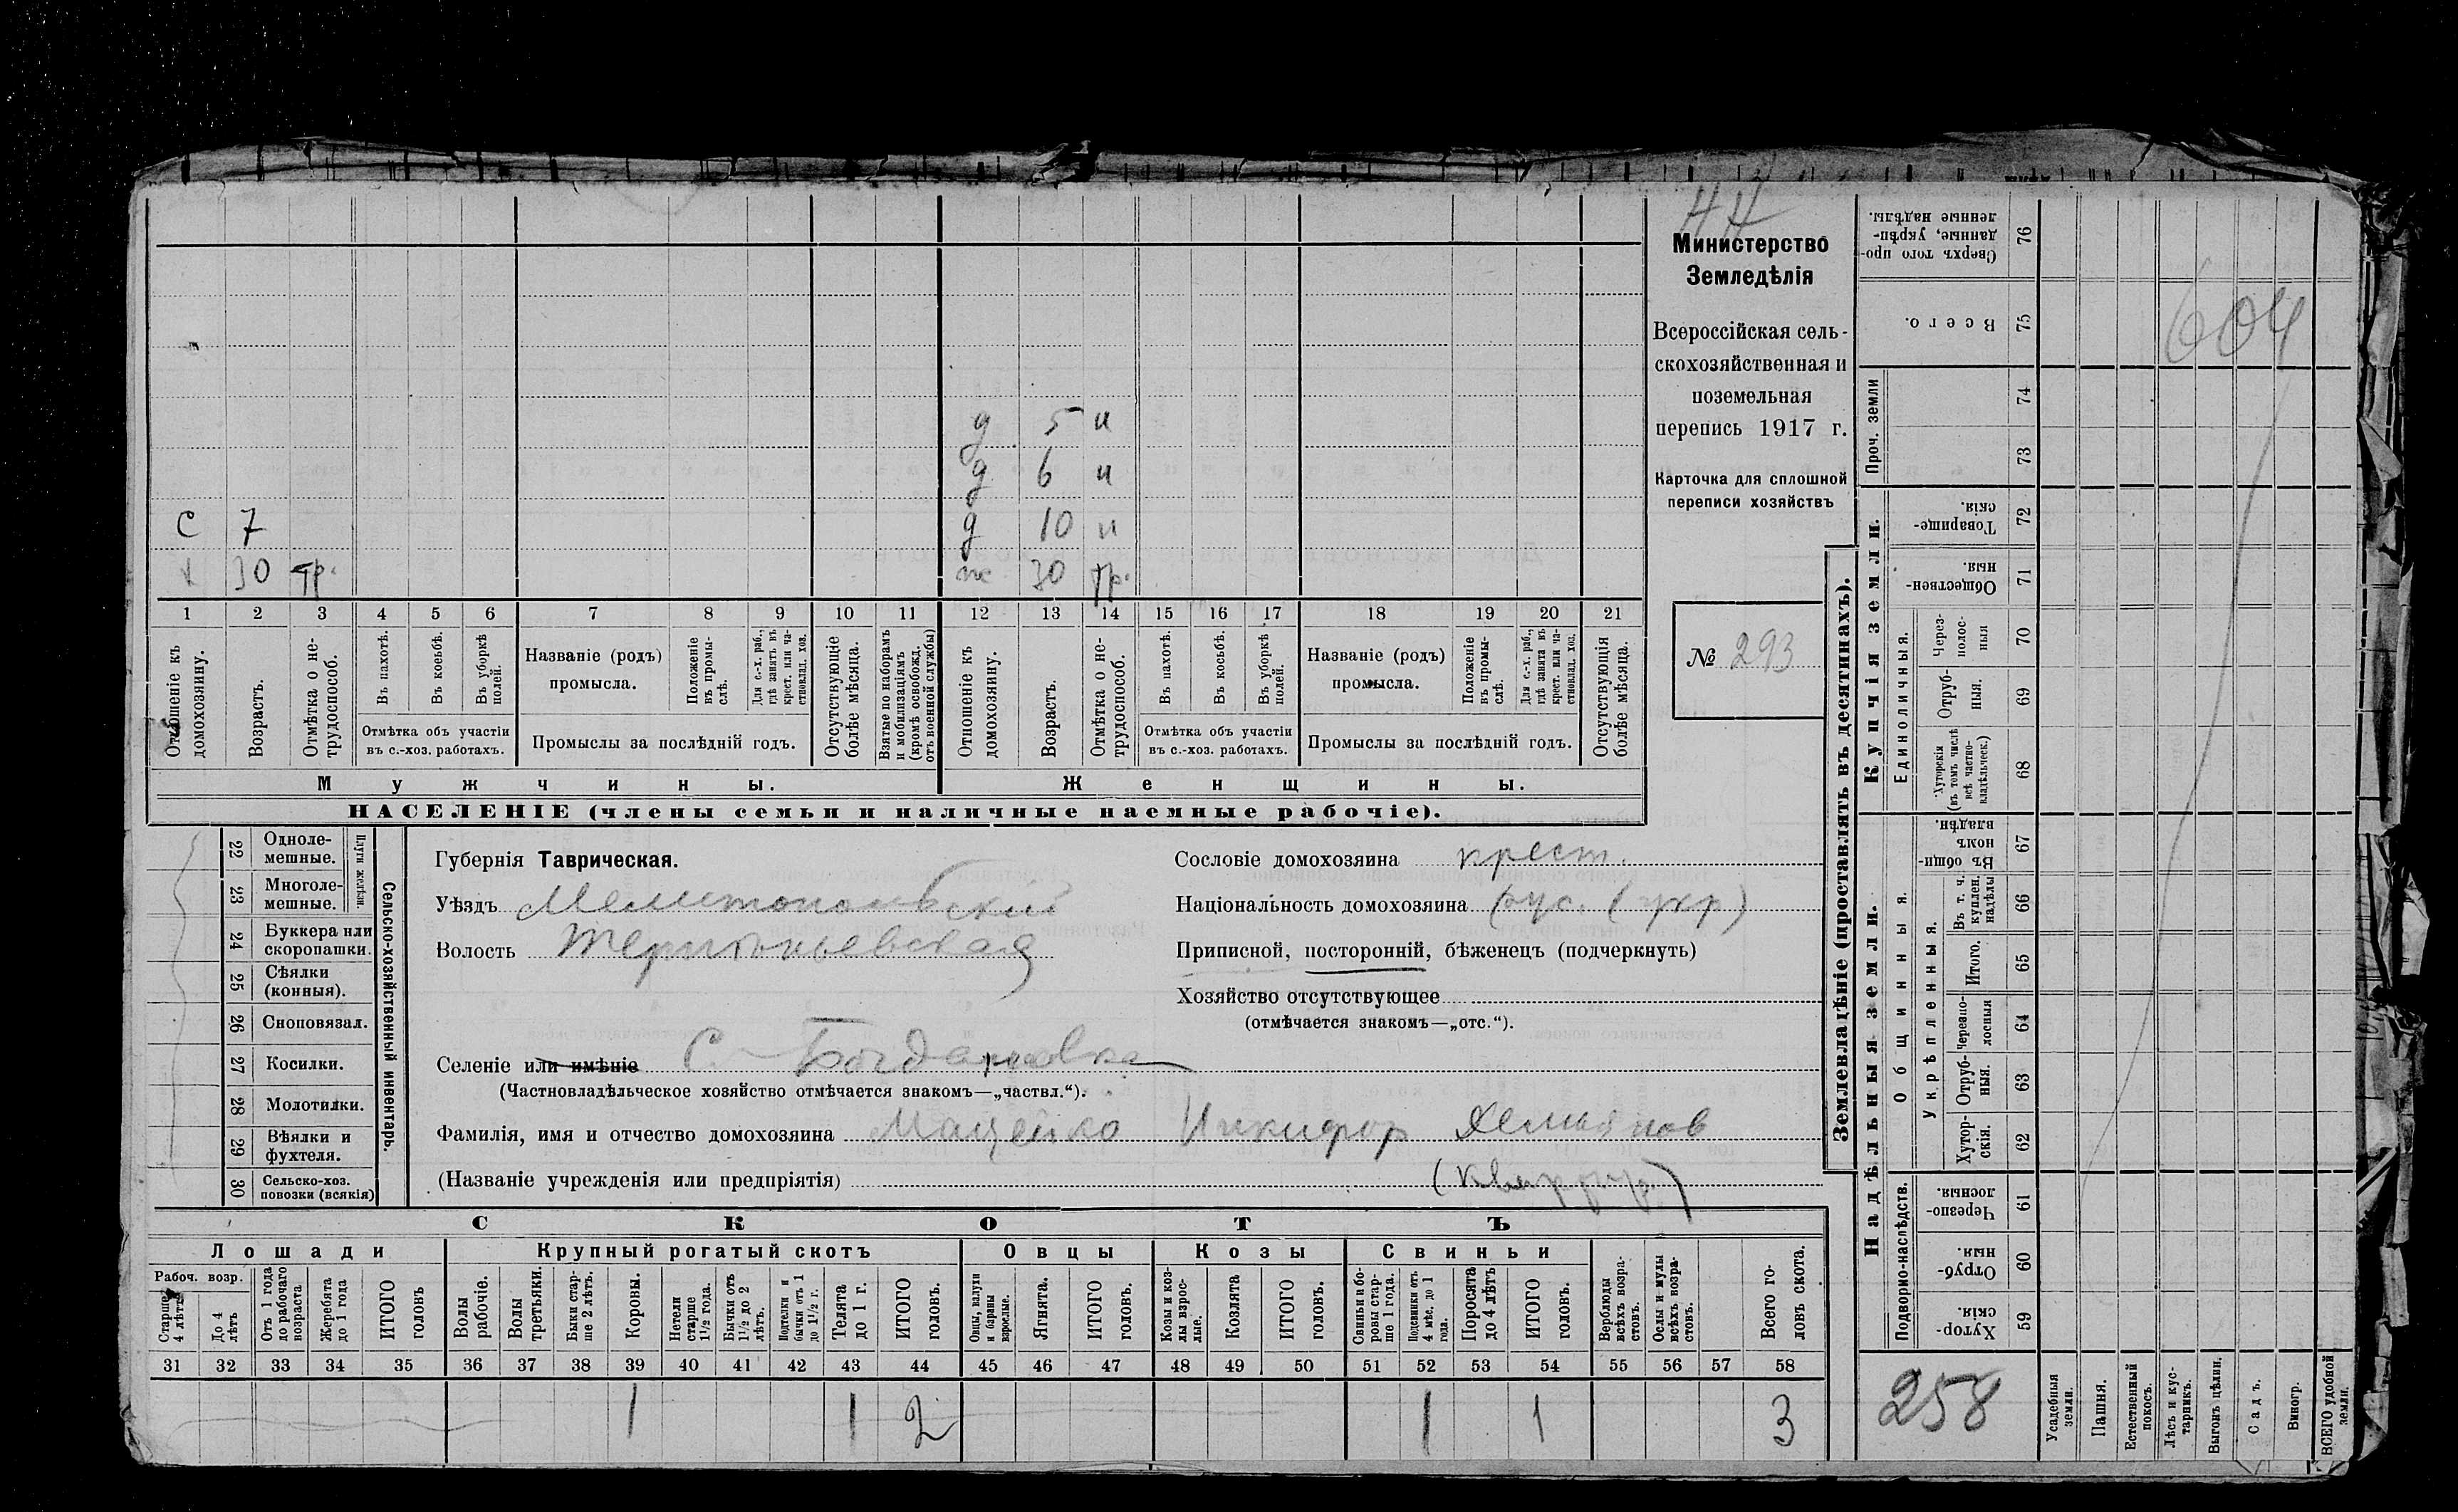 НН
Министерство
Земледѣлія
Всероссійская сель-
скохозяйственная и
поземельная
перепись 1917 г.
Карточка для сплошной
переписи хозяйствъ
№ 293
д 5 н
д 6 н
С 7 д 10 н
х 30 тр. ж 30 тр.
1 2 3 4 5 6 7 8 9 10 11 12 13 14 15 16 17 18 19 20 21
Отношеніе къ домохозяину.
Возрастъ.
Отмѣтка о не-трудоспособ.
Въ пахотѣ.
Въ косьбѣ.
Въ уборкѣ полей.
Отмѣтка объ участіи
въ с.-хоз. работахъ.
Названіе (родъ)
промысла.
Положеніе въ промы-слѣ.
Для с.-х. раб., гдѣ занятъ въ крест. или ча-стновлад. хоз.
Промыслы за послѣдній годъ.
Отсутствующіе болѣе мѣсяца.
Взятые по наборамъ и мобилизаціямъ (кромѣ освобожд. отъ военной службы)
Отношеніе къ домохозяину.
Возрастъ.
Отмѣтка о не-трудоспособ.
Въ пахотѣ.
Въ косьбѣ.
Въ уборкѣ полей.
Отмѣтка объ участіи
въ с.-хоз. работахъ.
Названіе (родъ)
промысла.
Положеніе въ промы-слѣ.
Для с.-х. раб., гдѣ занята въ крест. или ча-стновлад. хоз.
Промыслы за послѣдній годъ.
Отсутствующія болѣе мѣсяца.
Мужчины. Женщины.
НАСЕЛЕНІЕ (члены семьи и наличные наемные рабочіе).
22 Одноле-мешные.
23 Многоле-мешные.
Плуги желѣзн.
24 Буккера или скоропашки.
25 Сѣялки (конныя).
26 Сноповязал.
27 Косилки.
28 Молотилки.
29 Вѣялки и фухтеля.
30 Сельско-хоз. повозки (всякія)
Сельско-хозяйственный инвентарь.
Губернія Таврическая.
Уѣздъ Мелитопольский
Волость Терпеньевская
Селеніе или имѣніе С. Богдановка
(Частновладѣльческое хозяйство отмѣчается знакомъ—„частвл.“).
Фамилія, имя и отчество домохозяина Мацейко Никифор Демьянов
(Названіе учрежденія или предпріятія) (квартир.)
Сословіе домохозяина крест.
Національность домохозяина рус. (укр)
Приписной, посторонній, бѣженецъ (подчеркнуть)
Хозяйство отсутствующее
(отмѣчается знакомъ—„отс.“).
СКОТЪ
Лошади Крупный рогатый скотъ Овцы Козы Свиньи
Рабоч. возр.
Старше 4 лѣтъ
До 4 лѣтъ
Отъ 1 года до рабочаго возраста
Жеребята до 1 года
ИТОГО головъ
Волы рабочіе.
Волы третьяки.
Быки стар-ше 2 лѣтъ.
Коровы.
Нетели старше 1½ года.
Бычки отъ 1½ до 2 лѣтъ.
Подтелки и бычки отъ 1 до 1½ г.
Телята до 1 г.
ИТОГО головъ.
Овцы, валухи и бараны взрослые.
Ягнята.
ИТОГО головъ.
Козы и коз-лы взрос-лые.
Козлята
ИТОГО головъ.
Свиньи и бо-ровы стар-ше 1 года.
Подсвинки отъ 4 мѣс. до 1 года.
Поросята до 4 лѣтъ
ИТОГО головъ.
Верблюды всѣхъ возра-стовъ.
Ослы и мулы всѣхъ возра-стовъ.
Всего го-ловъ скота.
31 32 33 34 35 36 37 38 39 40 41 42 43 44 45 46 47 48 49 50 51 52 53 54 55 56 57 58
1 1 2 1 1 3
Землевладѣніе (проставлять въ десятинахъ).
Купчія земли.
Надѣльныя земли.
Сверхъ того про-данные, укрѣп-ленные надѣлы. 76
Всего. 75
604
Проч. земли 74 73
Товарище-скія 72
Обществен-ныя 71
Единоличныя.
Через-полос-ныя 70
Отруб-ныя. 69
Хуторскія (въ томъ числѣ всѣ частно-владѣльческ.) 68
Общинныя.
Въ общи-номъ владѣн. 67
Укрѣпленныя.
Въ т. ч. куплен. надѣлы 66
Итого. 65
Черезпо-лосныя 64
Отруб-ныя. 63
Хутор-скія. 62
Подворно-наслѣдств.
Черезпо-лосныя. 61
Отруб-ныя. 60
Хутор-скія. 59
258
Усадебныя земли.
Пашня.
Естественный покосъ.
Лѣсъ и кус-тарникъ.
Выгонъ цѣлин.
Садъ.
Виногр.
ВСЕГО удобной земли.